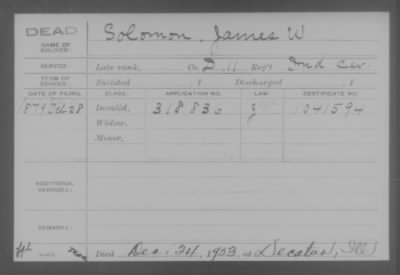 DEAD
NAME OF SOLDIER: Solomon, James W
SERVICE: Late rank, Co. D 11 Reg't Ind Cav.
TERM OF SERVICE: Enlisted , 1 Discharged , 1
DATE OF FILING. CLASS. APPLICATION NO. LAW. CERTIFICATE NO.
1879 Oct 28 Invalid, 318 836 1041594
Widow,
Minor,
ADDITIONAL SERVICES:
REMARKS:
Died Dec. 24, 1903, at Decatur, Ill.